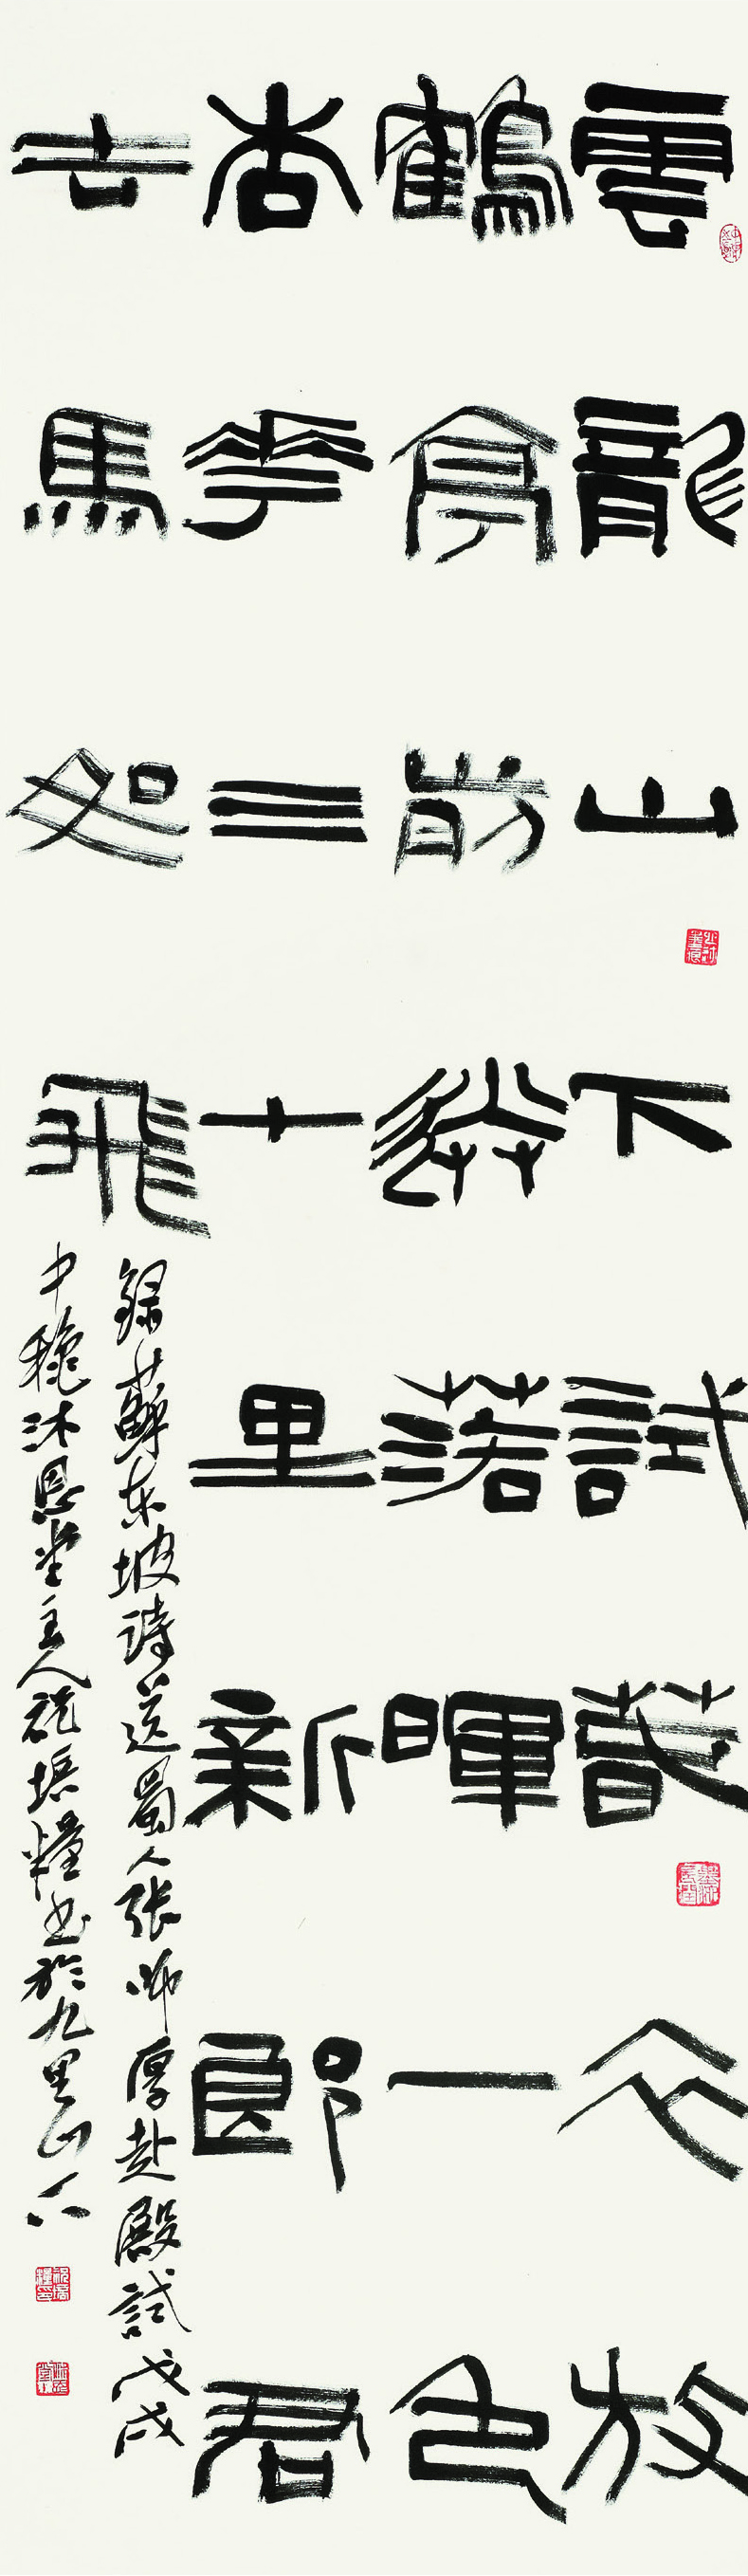 雲龍山下試萅衣放
鶴亭前送落暉一色
杏花三十里新郎君
去馬如飛
錄蘇東坡詩送蜀人張師厚赴殿試戊戌
中穐沐恩堂主人祝培糧書於九里山下